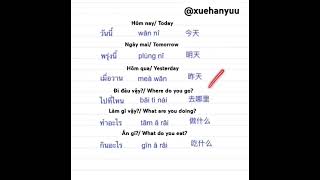 @xuehanyuu
Hôm nay/ Today
วันนี้ wăn ní 今天
Ngày mai/ Tomorrow
พรุ่งนี้ plùng nĩ 明天
Hôm qua/ Yesterday
เมื่อวาน meà wăn 昨天
Đi đâu vậy?/ Where do you go?
ไปที่ไหน bãi tì nái 去哪里
Làm gì vậy?/ What are you doing?
ทำอะไร tăm ã răi 做什么
Ăn gì?/ What do you eat?
กินอะไร gĩn ã răi 吃什么